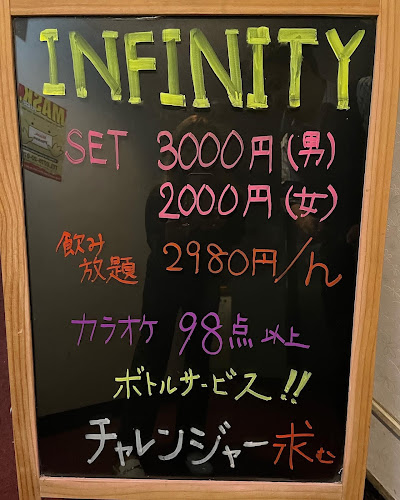 INFINITY
SET 3000円(男)
2000円(女)
飲み放題 2980円/h
カラオケ 98点以上
ボトルサービス!!
チャレンジャー求む